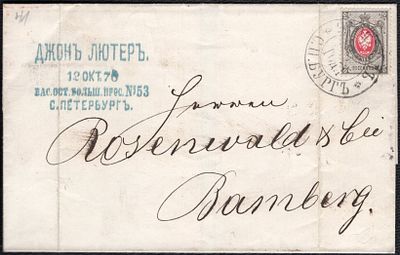 ДЖОНЪ ЛЮТЕРЪ.
12 ОКТ. 76
ВАС. ОСТ. БОЛЬШ. ПРОС. №53
С. ПЕТЕРБУРГЪ.
Herren
Rosenwald & Cie
Bamberg.